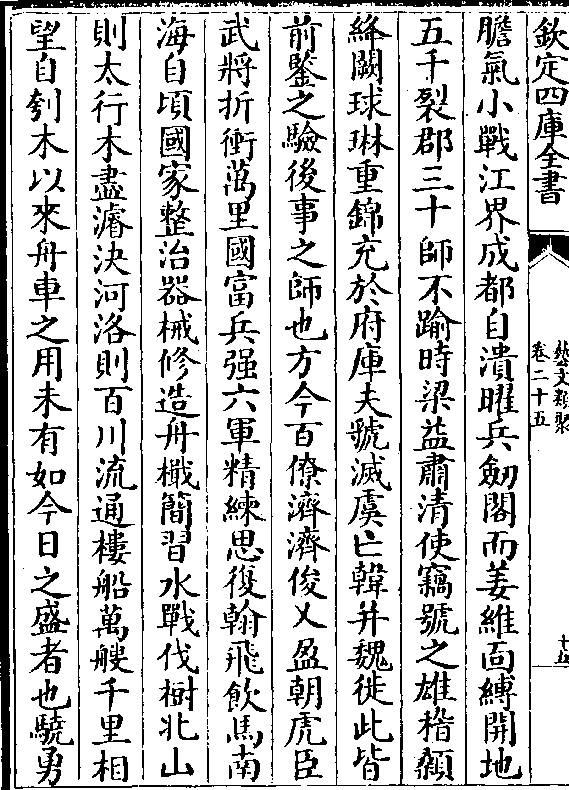 欽定四庫全書
藝文類聚
卷二十五
十五
膽氣小戰江界成都自潰曜兵劒閣而姜維面縛開地
五千裂郡三十師不踰時梁益肅清使竊號之雄稽顙
絳闕球琳重錦充於府庫夫虢滅虞亡韓并魏徙此皆
前鑒之驗後事之師也方今百僚濟濟俊乂盈朝虎臣
武將折衝萬里國富兵强六軍精練思復翰飛飲馬南
海自頃國家整治器械修造舟檝簡習水戰伐樹北山
則太行木盡濬決河洛則百川流通樓船萬艘千里相
望自刳木以來舟車之用未有如今日之盛者也驍勇